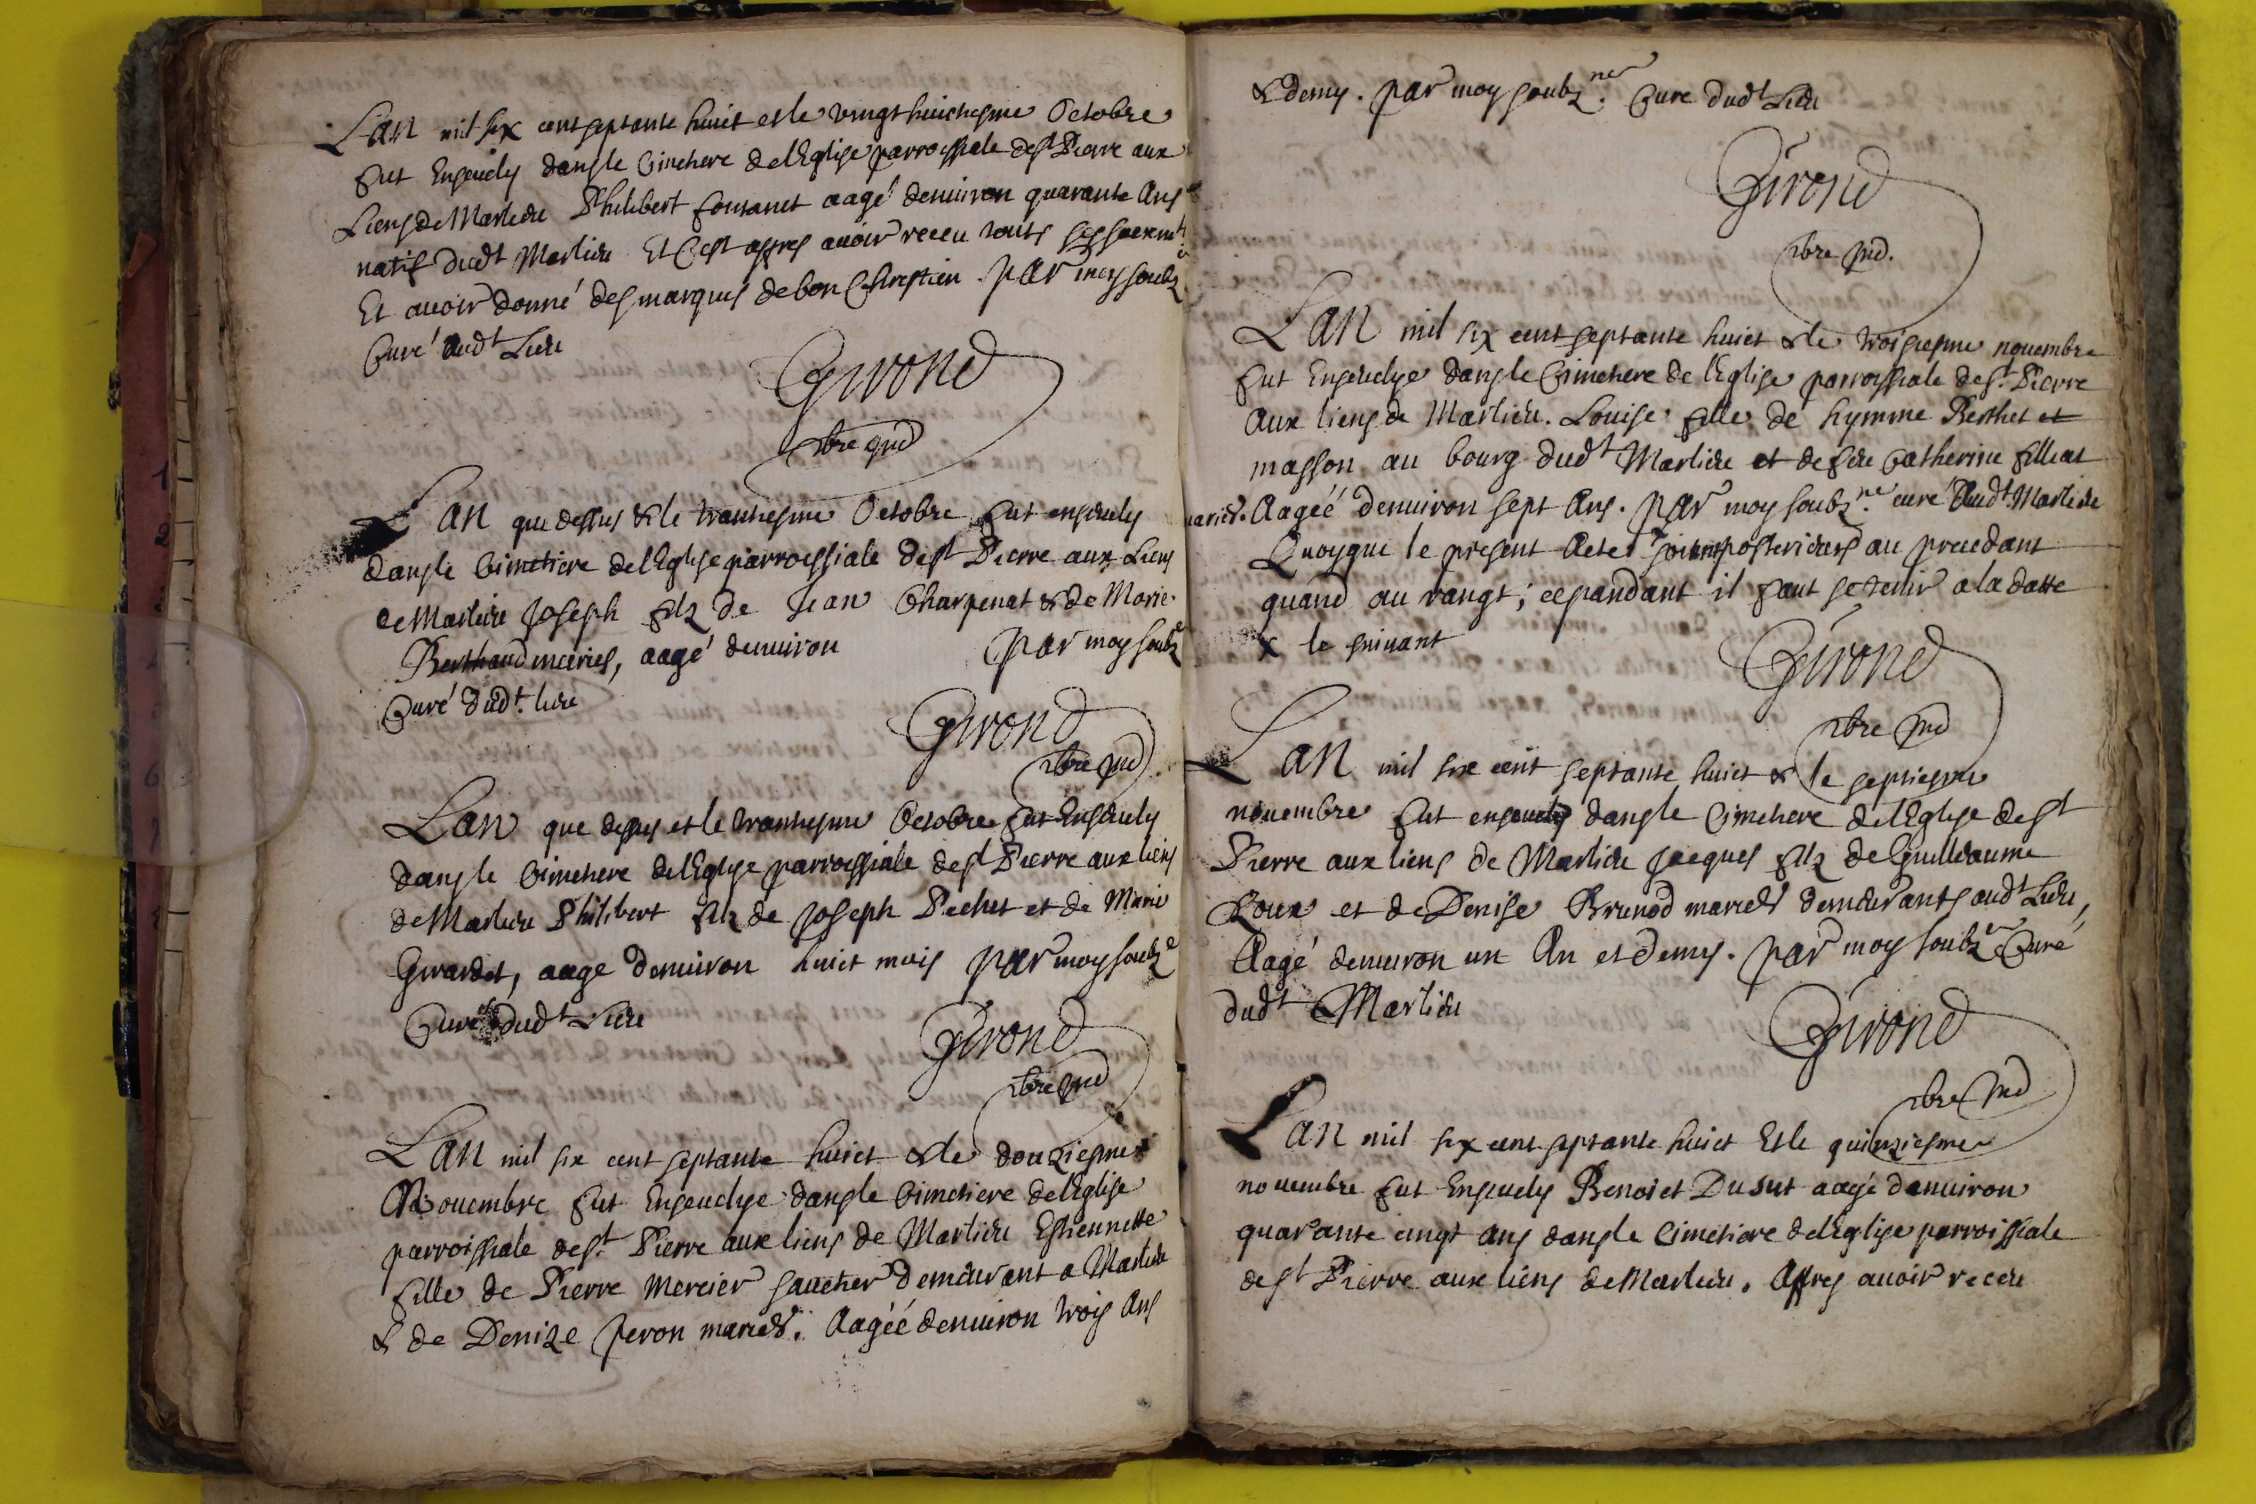 Lan mil six cent septante huict et le vingt huictiesme Octobre
fut Enseuely dans le Cimetiere de l'Eglise parroissiale de st Pierre aux
Liens de Marlieu Philibert Fontanet aagé denuiron quarante Ans
natif dudt Marlieu Et C'est apres auoir receu touts ses sacremts
Et auoir donné des marques de bon Chrestien. par moy soubz
Curé dudt Lieu
Girond
pbre
Lan que dessus & le trantiesme Octobre fut enseuely
dans le Cimetiere de l'Eglise parroissiale de st Pierre aux Liens
de Marlieu Joseph filz de Jean Charpenat & de Marie
Berthaud mariés, aagé denuiron par moy soubze
Curé dudt. lieu
Girond
pbre
Lan que dessus et le trantiesme Octobre fut Enseuely
dans le Cimetiere de l'Eglise parroissiale de st Pierre aux liens
de Marlieu Philibert filz de Joseph Pechet et de Marie
Girardet, aage denuiron huict mois par moy soubze
Curé dudt Lieu
Girond
pbre
Lan mil six cent septante huict & le douziesme
Nouembre fut Enseuelye dans le Cimetiere de l'Eglise
parroissiale de st. Pierre aux liens de Marlieu Estiennette
fille de Pierre Mercier demeurant a Marlieu
& de Denize peron mariés. Aagéé denuiron trois Ans
& demy. par moy soubz.ne Cure dudt Lieu
Girond
pbre
Lan mil six cent septante huict & le troisiesme nouembre
fut Enseuelye dans le Cimetiere de l'Eglise parroissiale de st. Pierre
Aux liens de Marlieu. Louise fille de hymme Berthet et
masson au bourg dudt Marlieu et de feu Catherine filleat
mariés. Aagéé denuiron sept Ans. par moy soubz.ne curé dudt Marlieu
Quoyque le present Acte posterieur au precedant
quand au rangt; cependant il faut se tenir a la datte
x le suiuant
Girond
pbre
Lan mil six cent septante huict & le septiesme
nouembre fut enseuely dans le Cimetiere de l'Eglise de st
Pierre aux liens de Marlieu Jacques filz de Guilleaume
Roux et de Denise Brunod mariés demeurants audt Lieu,
Aagé denuiron un An et demy. par moy soubz Curé
dudt Marlieu
Girond
pbre
Lan mil six cent septante huict Et le quinziesme
nouembre fut Enseuely Benoict Dusut aagé denuiron
quarante cinqt ans dans le Cimetiere de l'Eglise parroissiale
de st Pierre aux liens de Marlieu. Apres auoir receu